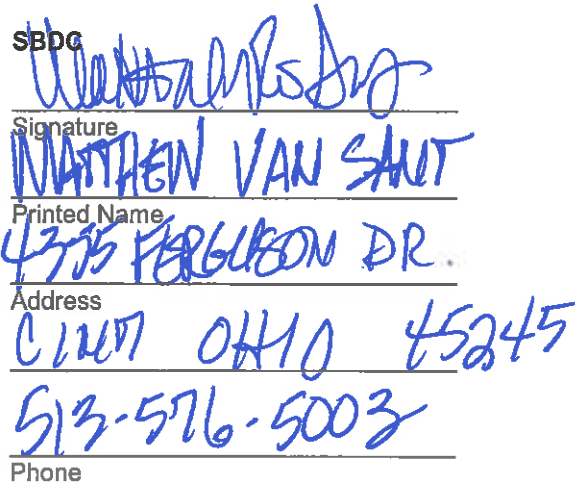 SBDC
Signature
MATTHEW VAN SANT
Printed Name
4355 FERGUSON DR.
Address
CINTI OHIO 45245
513-576-5003
Phone